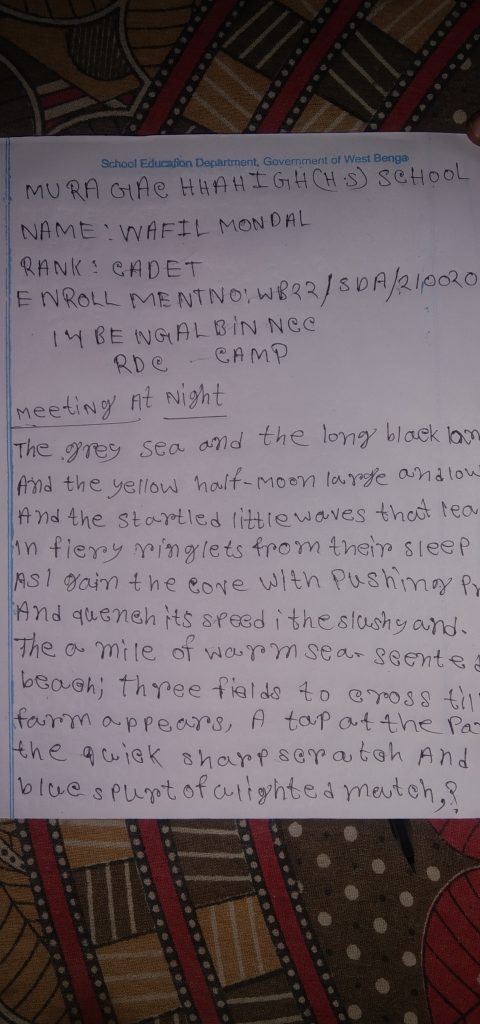 School Education Department, Government of West Benga
MURAGIAC HHAHIGH(H.S) SCHOOL
NAME: WAFIL MONDAL
RANK: CADET
ENROLLMENTNO: WB22/SDA/210020
14 BENGALBiN NCC
RDC CAMP
Meeting At Night
The grey sea and the long black lan
And the yellow half-moon large and low
And the startled little waves that lea
in fiery ringlets from their sleep
As I gain the cove with Pushing Pr
And quench its speed i the slushy and.
The a mile of warm sea- scented
beach; three fields to cross til
farm appears, A tap at the Pa
the quick sharp scratch And
blue spurt of a lighted match,?